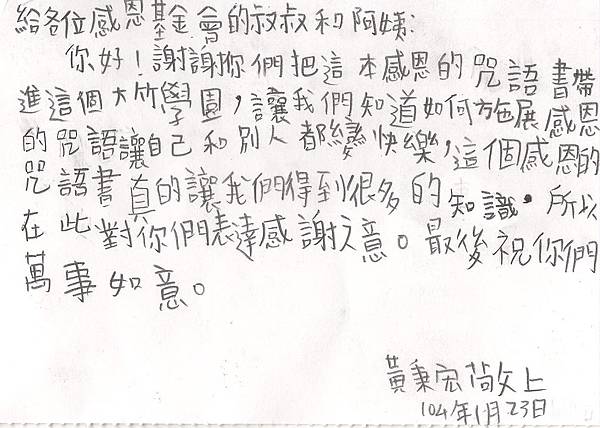 給各位感恩基金會的叔叔和阿姨:
你好!謝謝你們把這本感恩的咒語書帶
進這個大竹學園,讓我們知道如何施展感恩
的咒語讓自己和別人都變快樂,這個感恩的
咒語書真的讓我們得到很多的知識。所以
在此對你們表達感謝之意。最後祝你們
萬事如意。
黃秉宏敬上
104年1月23日